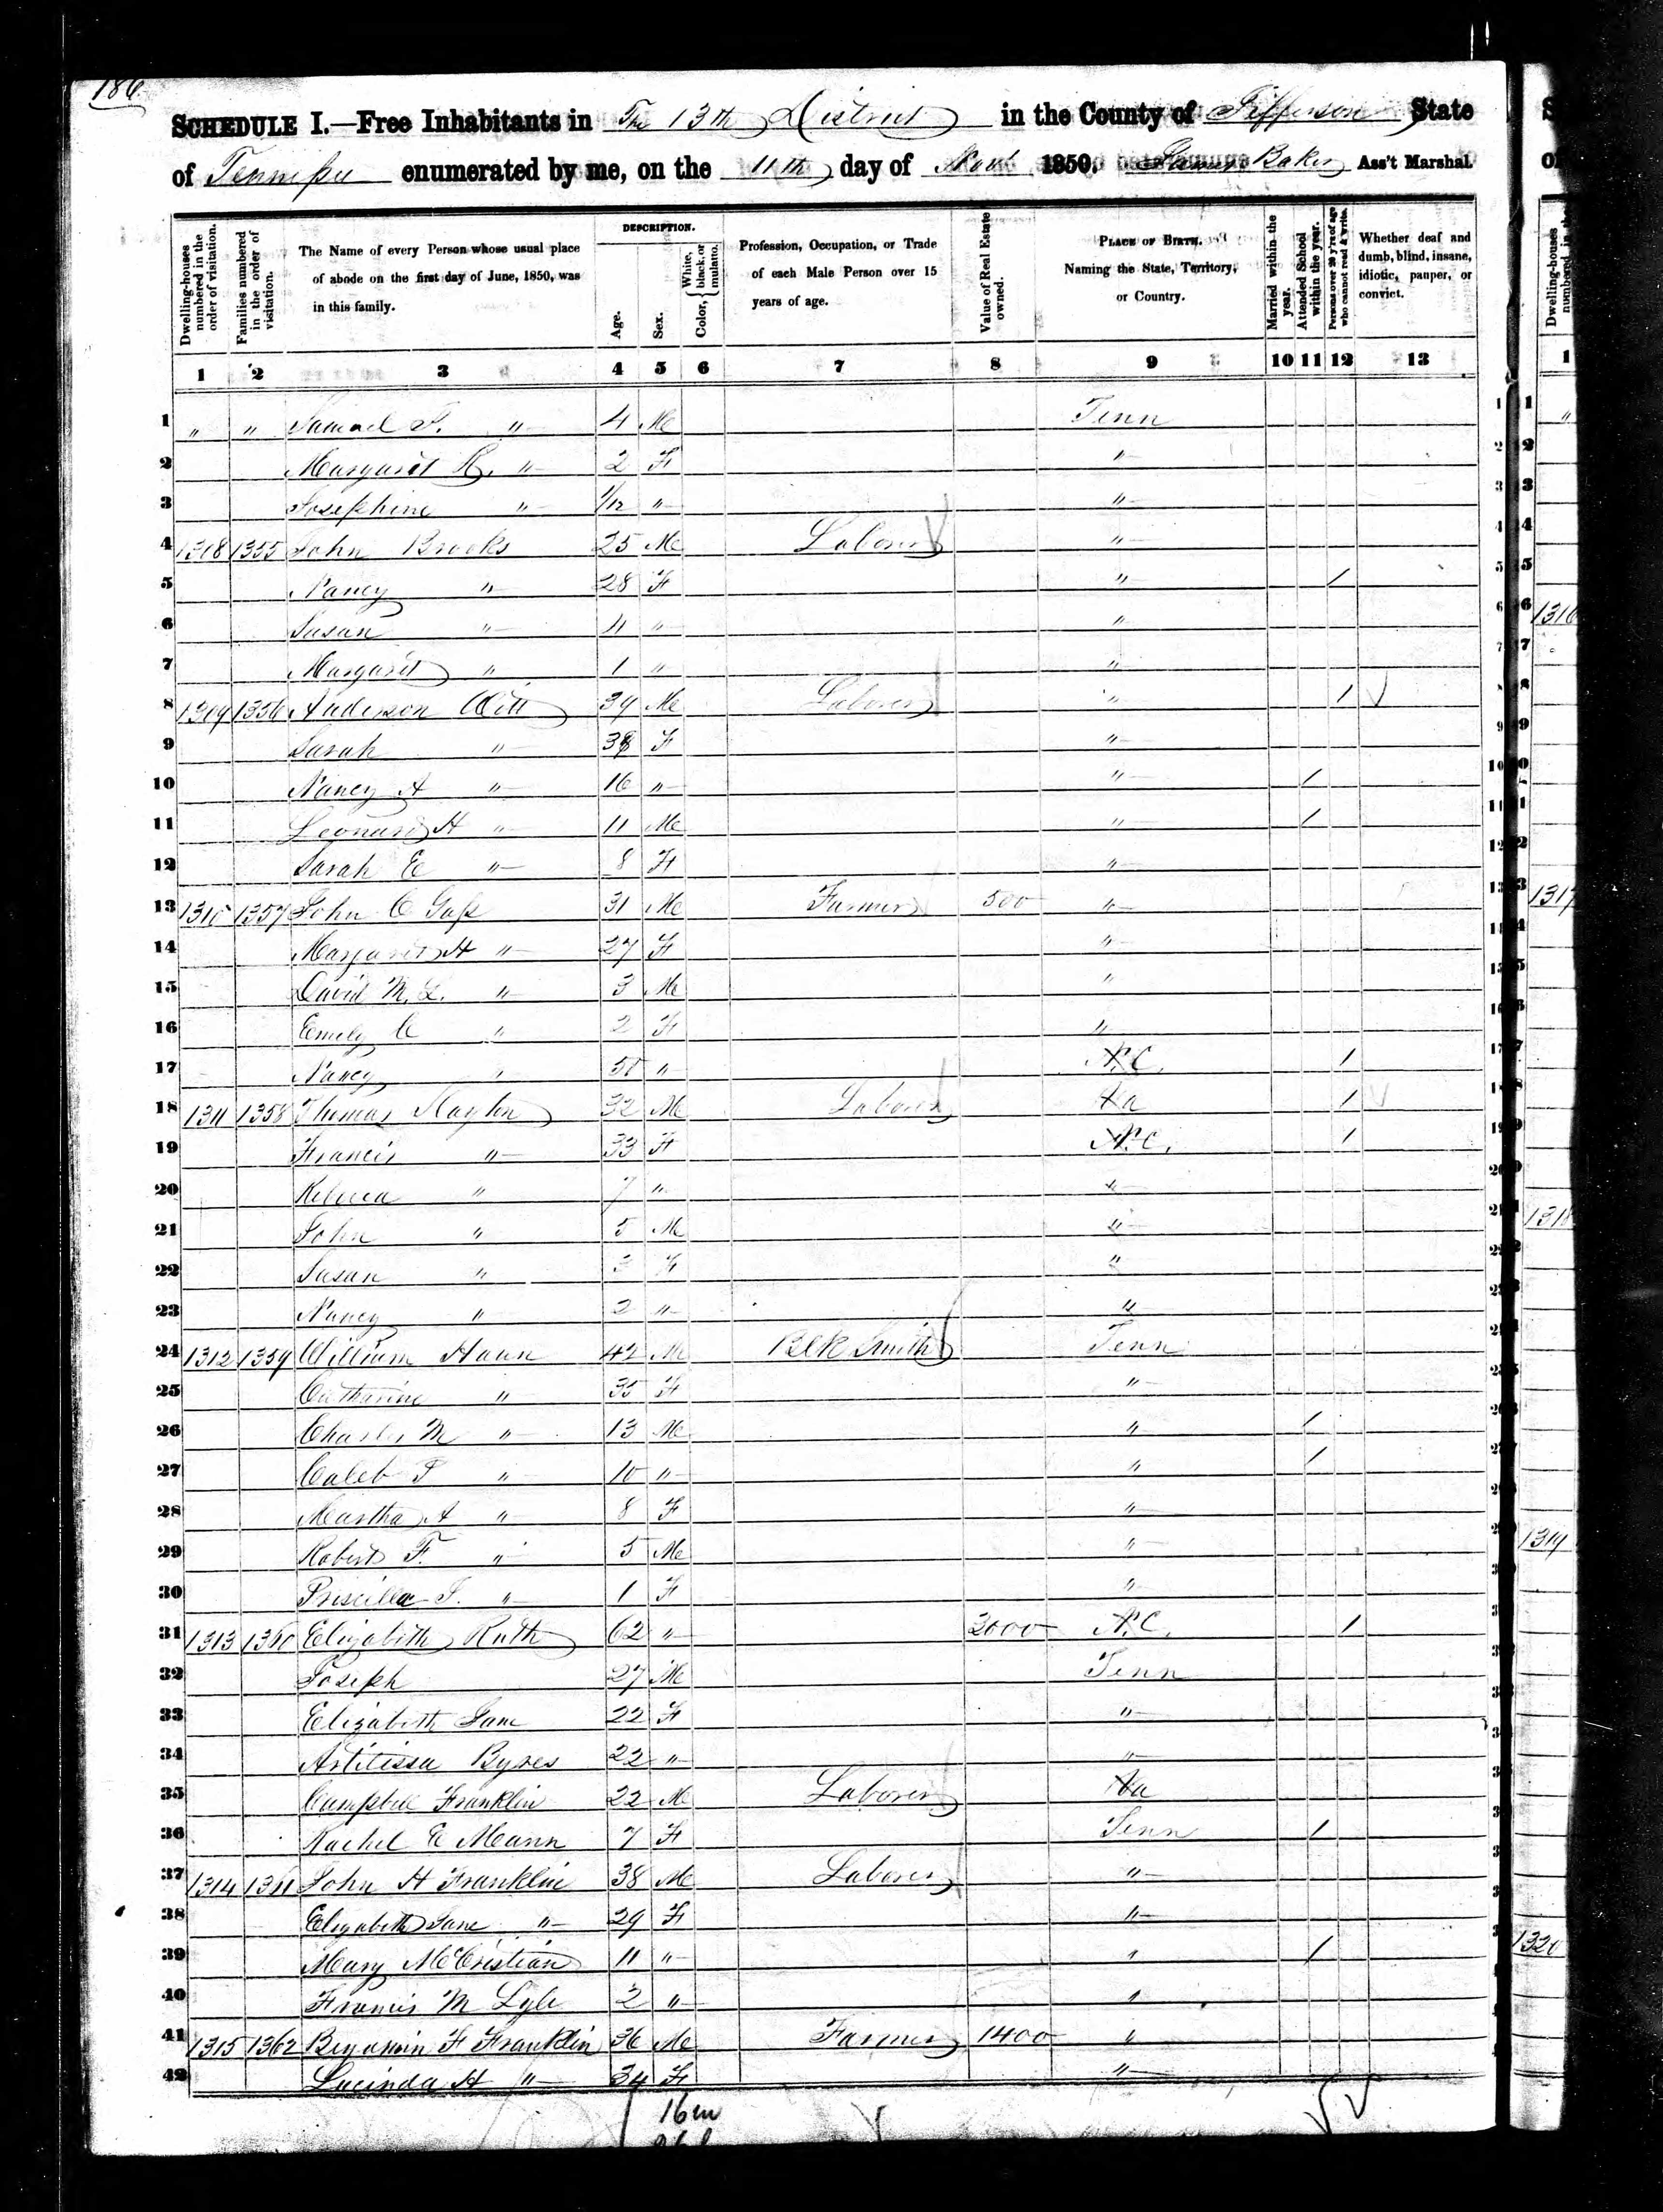 186
SCHEDULE I.—Free Inhabitants in The 13th District in the County of Jefferson State
of Tennessee enumerated by me, on the 11th day of Nov 1850. Baker Ass't Marshal.
Dwelling-houses numbered in the order of visitation.
Families numbered in the order of visitation.
The Name of every Person whose usual place of abode on the first day of June, 1850, was in this family.
DESCRIPTION.
Age.
Sex.
Color, { White, black, or mulatto.
Profession, Occupation, or Trade of each Male Person over 15 years of age.
Value of Real Estate owned.
PLACE OF BIRTH. Naming the State, Territory, or Country.
Married within the year.
Attended School within the year.
Persons over 20 y'rs of age who cannot read & write.
Whether deaf and dumb, blind, insane, idiotic, pauper, or convict.
1 2 3 4 5 6 7 8 9 10 11 12 13
1 " " Samuel F. " 4 M Tenn 1
2 Margaret R. " 2 F " 2
3 Josephine " 1/12 " " 3
4 1308 1355 John Brooks 25 M Laborer " 4
5 Nancy " 28 F " / 5
6 Susan " 4 " " 6
7 Margaret " 1 " " 7
8 1309 1356 Anderson Witt 39 M Laborer " 1 8
9 Sarah " 38 F " 9
10 Nancy A " 16 " " / 10
11 Leonard H " 11 M " / 11
12 Sarah E " 8 F " 12
13 1310 1357 John C Gass 31 M Farmer 500 " 13
14 Margaret H " 27 F " 14
15 David M. L. " 3 M " 15
16 Emily C " 2 F " 16
17 Nancy " 50 " N.C. 1 17
18 1311 1358 Thomas Slayton 32 M Laborer Va 1 18
19 Francis " 33 F N.C. 1 19
20 Rebecca " 7 " " 20
21 John " 5 M " 21
22 Susan " 3 F " 22
23 Nancy " 2 " " 23
24 1312 1359 William Haun 42 M Blk Smith Tenn
25 Catharine " 35 F "
26 Charles M " 13 M " /
27 Caleb F " 10 " " /
28 Martha A " 8 F "
29 Robert F. " 5 M "
30 Priscilla J. " 1 F "
31 1313 1360 Elizabeth Ruth 62 " 2000 N.C. 1
32 Joseph 27 M Tenn
33 Elizabeth Jane 22 F "
34 Artilissa Byres 22 " "
35 Campbell Franklin 22 M Laborer Va
36 Rachel E Mann 7 F Tenn /
37 1314 1361 John H Franklin 38 M Laborer "
38 Elizabeth Jane " 29 F "
39 Mary McCristian 11 " " /
40 Francis M Lyle 2 " "
41 1315 1362 Benjamin F Franklin 36 M Farmer 1400 "
42 Lucinda H " 34 F "
16 m
1
1316
1317
1318
1319
1320